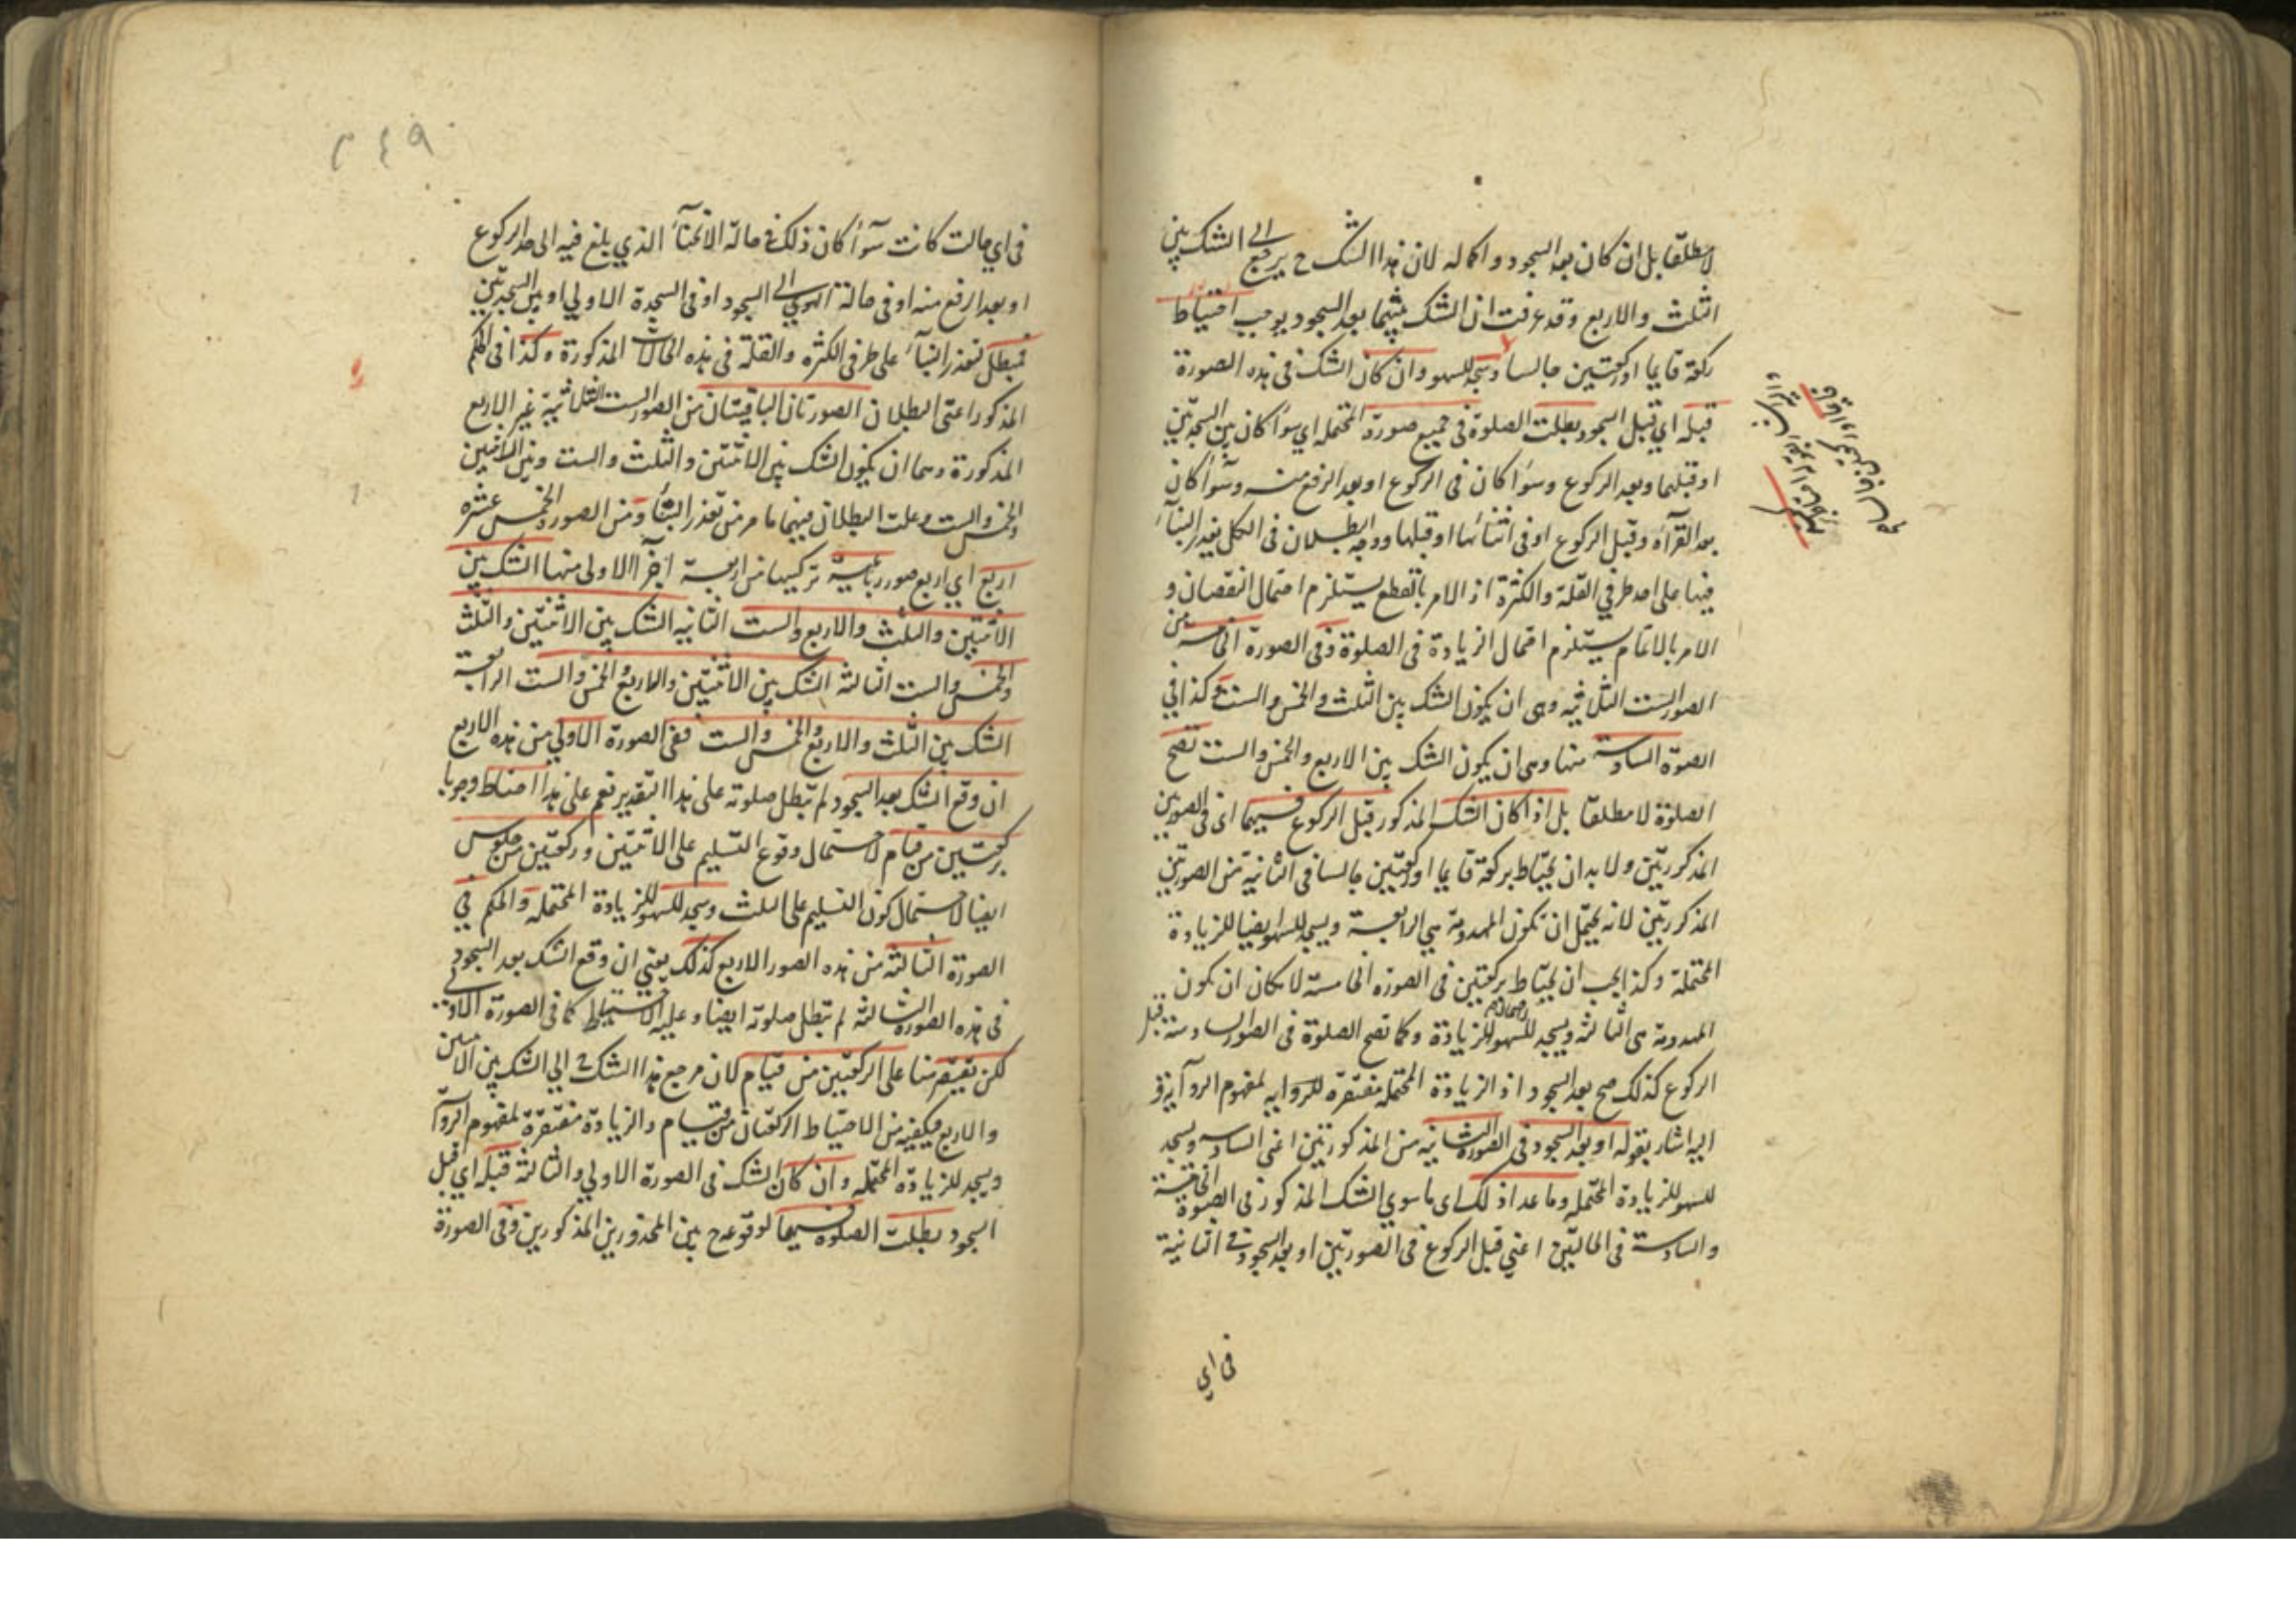 لا مطلقا بل ان كان بعد السجود و اكماله لان هذا الشك ح يرجع الى الشك بين
الثلث والاربع وقد عرفت ان الشك بينهما بعد السجود يوجب احتياط
ركعة قايما او ركعتين جالسا وسجد للسهو وان كان الشك في هذه الصورة
قبله اي قبل السجود بطلت الصلوة في جميع صورة المحتمله اي سوا كان بين السجدتين
او قبلهما وبعد الركوع وسوا كان في الركوع او بعد الرفع منه وسوا كان
بعد القرآة وقبل الركوع او في اثنائها او قبلها ووجه البطلان في الكل تعذر البنآء
فيها على احد طرفي القلة والكثرة اذ الامر بالقطع يستلزم احتمال النقصان و
الامر بالاتمام يستلزم احتمال الزيادة في الصلوة وفي الصورة الخامسة من
الصور الست الثلاثيه وهى ان يكون الشك بين الثلث والخمس والست وكذا في
الصوة السادسة منها وهى ان يكون الشك بين الاربع والخمس والست تصح
الصلوة لا مطلقا بل اذا كان الشك المذكور قبل الركوع فيهما اى في الصورتين
المذكورتين ولا بد ان يحتاط بركعة قايما او ركعتين جالسا في الثانية من الصورتين
المذكورتين لانه يحتمل ان تكون المهدومة هي الرابعة ويسجد للسهو ايضا للزيادة
المحتملة وكذا يجب ان يحتاط بركعتين في الصورة الخامسة لامكان ان تكون
المهدومة هى الثالثة ويسجد للسهو للزيادة وكما تصح الصلوة في الصور السادسة قبل
الركوع كذلك تصح بعد السجود اذ الزيادة المحتملة مغتفرة للروايه لمفهوم الروآية و
اليه اشار بقوله او بعد السجود في الصورة الثانيه من المذكورتين اعنى السادسه ويسجد
للسهو للزيادة المحتمله وما عدا ذلك اى ما سوي الشك المذكور في الصوة الخامسة
والسادسة في الحالتين اعني قبل الركوع في الصورتين او بعد السجود في الثانية
في اي
٢٤٩
في اي حالت كانت سوآا كان ذلك في حالة الانحنآء الذي بلغ فيه الى حد الركوع
او بعد الرفع منه او في حالة الهوي الى السجود او في السجدة الاولي او بين السجدتين
فتبطل لتعذر البنآء على طرفي الكثره والقلة في هذه الحالات المذكورة وكذا في الحكم
المذكور اعنى البطلان الصورتان الباقيتان من الصور الست الثلاثية غير الاربع
المذكورة وهما ان يكون الشك بين الاثنتين والثلث والست وبين الاثنين
والخمس والست وعلت البطلان فيهما ما مر من تعذر البنآء ومن الصور الخمس عشره
اربع اي اربع صور رباعية تركيبها من اربعة اجزآ الاولى منها الشك بين
الاثنتين والثلث والاربع والست الثانيه الشك بين الاثنتين والثلث
والخمس والست الثالثة الشك بين الاثنتين والاربع والخمس والست الرابعة
الشك بين الثلث والاربع والخمس والست ففي الصورة الاولي من هذه الاربع
ان وقع الشك بعد السجود لم تبطل صلوته على هذا التقدير نعم على هذا احتاط وجوبا
بركعتين من قيام لاحتمال وقوع التسليم على الاثنتين وركعتين من جلوس
ايضا لاحتمال كون التسليم على الثلث وسجد للسهو للزيادة المحتمله والحكم في
الصورة الثالثة من هذه الصور الاربع كذلك يعني ان وقع الشك بعد السجود
في هذه الصورة الثالثة لم تبطل صلوته ايضا وعليه الاحتياط كما في الصورة الاولى
لكن يقتصر هنا على الركعتين من قيام لان مرجع هذا الشك ح الي الشك بين الاثنين
والاربع فيكفيه من الاحتياط الركعتان من قيام والزيادة مغتفرة لمفهوم الروآ
ويسجد للزيادة المحتمله وان كان الشك في الصورة الاولي والثالثة قبله اي قبل
السجود بطلت الصلوة فيهما لوقوعه ح بين المحذورين المذكورين وفي الصورة